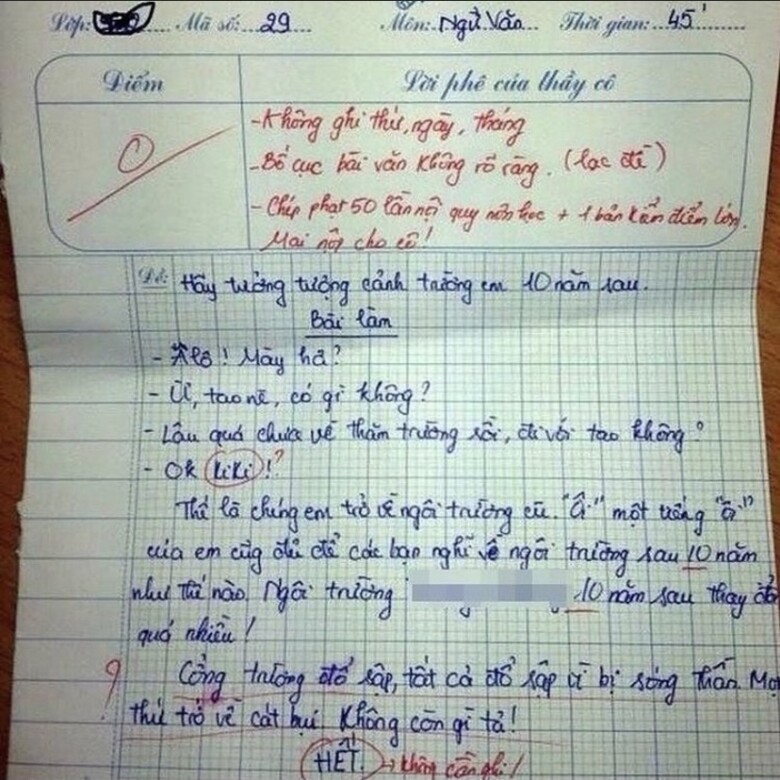 Lớp: Mã số: 29 Môn: Ngữ Văn Thời gian: 45'
Điểm Lời phê của thầy cô
0
- Không ghi thứ, ngày, tháng
- Bố cục bài văn không rõ ràng. (lạc đề)
- Chép phạt 50 lần nội quy môn học + 1 bản kiểm điểm lớn.
Mai nộp cho cô!
Đề: Hãy tưởng tượng cảnh trường em 10 năm sau.
Bài làm
- Alô! Mày hả?
- Ừ, tao nè, có gì không?
- Lâu quá chưa về thăm trường rồi, đi với tao không?
- Ok kiki!?
Thế là chúng em trở về ngôi trường cũ. "Ồ" một tiếng "ồ"
của em cũg đủ để các bạn nghĩ về ngôi trường sau 10 năm
như thế nào. Ngôi trường 10 năm sau thay đổi
quá nhiều!
? Cổng trường đổ sập, tất cả đổ sập vì bị sóng thần. Mọi
thứ trở về cát bụi. Không còn gì tả!
HẾT. → không cần ghi!